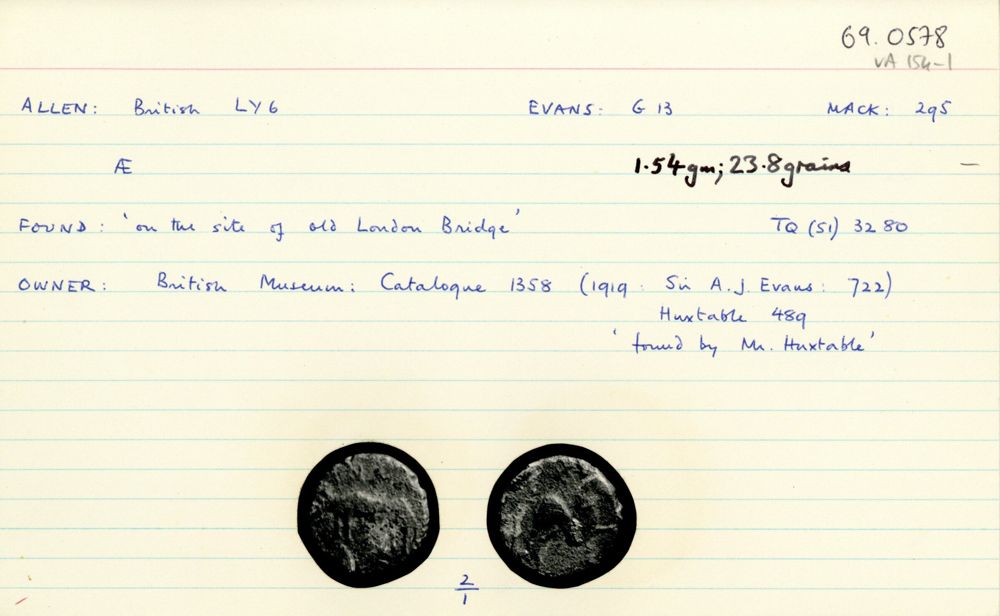 69.0578
VA 154-1
ALLEN: British LY6 EVANS: G 13 MACK: 295
Æ 1.54gm; 23.8grains –
FOUND: 'on the site of old London Bridge' TQ (51) 32 80
OWNER: British Museum: Catalogue 1358 (1919: Sir A.J. Evans: 722)
Huxtable 489
'found by Mr. Huxtable'
2
1